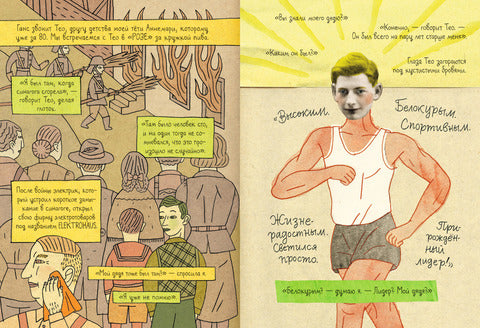 Ганс звонит Тео, другу детства моей тёти Аннемари, которому
уже за 80. Мы встречаемся с Тео в «РОЗЕ» за кружкой пива.
«Я был там, когда
синагога сгорела», —
говорит Тео, делая
глоток.
«Там было человек сто,
и ни один тогда не со-
мневался, что это про-
изошло не случайно».
После войны электрик, кото-
рый устроил короткое замы-
кание в синагоге, открыл
свою фирму электротоваров
под названием ELEKTROHAUS.
«Мой дядя тоже был там?» — спросила я.
«Я уже не помню».
«Вы знали моего дядю?»
«Конечно, — говорит Тео. —
Он был всего на пару лет старше меня».
«Каким он был?»
Глаза Тео загораются
под кустистыми бровями.
«Высоким.
Белокурым.
Спортивным.
Жизне-
радостным.
Светился
просто.
При-
рожден-
ный
лидер!»
«Белокурый? — думаю я — Лидер? Мой дядя?»